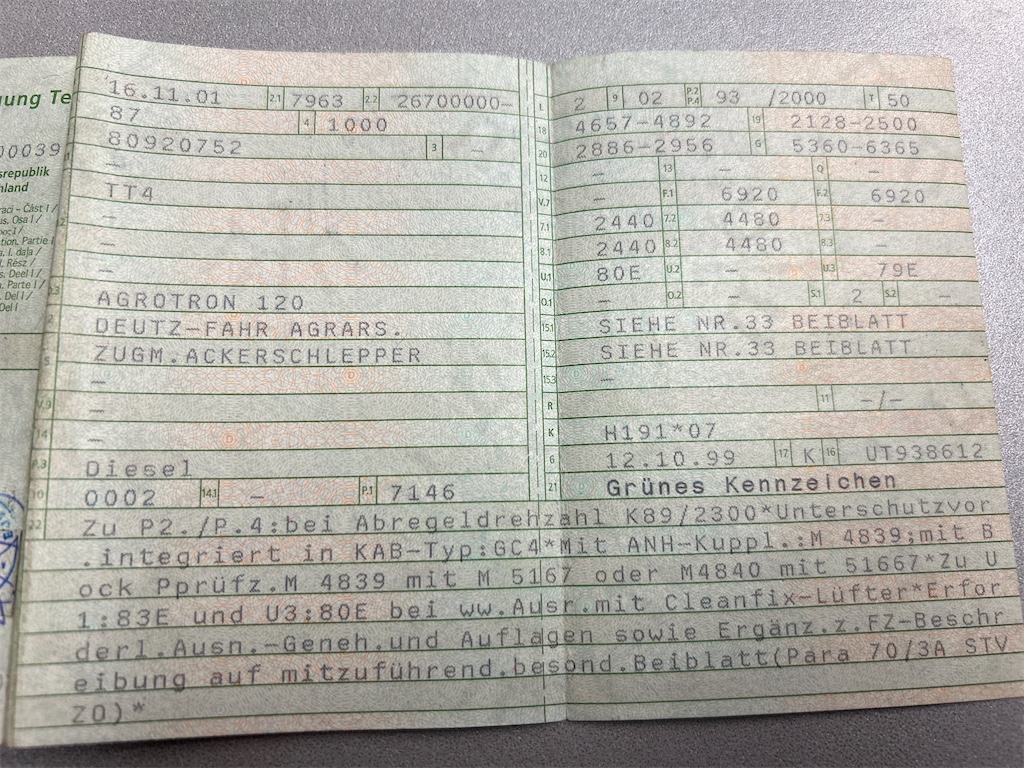 ung Te
00039
srepublik
hland
16.11.01 2.1 7963 2.2 26700000-
87 4 1000
80920752 3 –
–
TT4
–
–
–
AGROTRON 120
DEUTZ-FAHR AGRARS.
ZUGM.ACKERSCHLEPPER
–
–
–
Diesel
10 0002 14.1 – P.1 7146
L 2 9 02 P.2 P.4 93 /2000 T 50
18 4657-4892 19 2128-2500
20 2886-2956 G 5360-6365
12 – 13 – Q –
V.7 – F.1 6920 F.2 6920
7.1 2440 7.2 4480 7.3 –
8.1 2440 8.2 4480 8.3 –
U.1 80E U.2 – U.3 79E
O.1 – O.2 – S.1 2 S.2 –
15.1 SIEHE NR.33 BEIBLATT
15.2 SIEHE NR.33 BEIBLATT
15.3 –
R 11 –/–
K H191*07
6 12.10.99 17 K 16 UT938612
21 Grünes Kennzeichen
22 Zu P2./P.4:bei Abregeldrehzahl K89/2300*Unterschutzvor
.integriert in KAB-Typ:GC4*Mit ANH-Kuppl.:M 4839;mit B
ock Pprüfz.M 4839 mit M 5167 oder M4840 mit 51667*Zu U
1:83E und U3:80E bei ww.Ausr.mit Cleanfix-Lüfter*Erfor
derl.Ausn.-Geneh.und Auflagen sowie Ergänz.z.FZ-Beschr
eibung auf mitzuführend.besond.Beiblatt(Para 70/3A STV
ZO)*